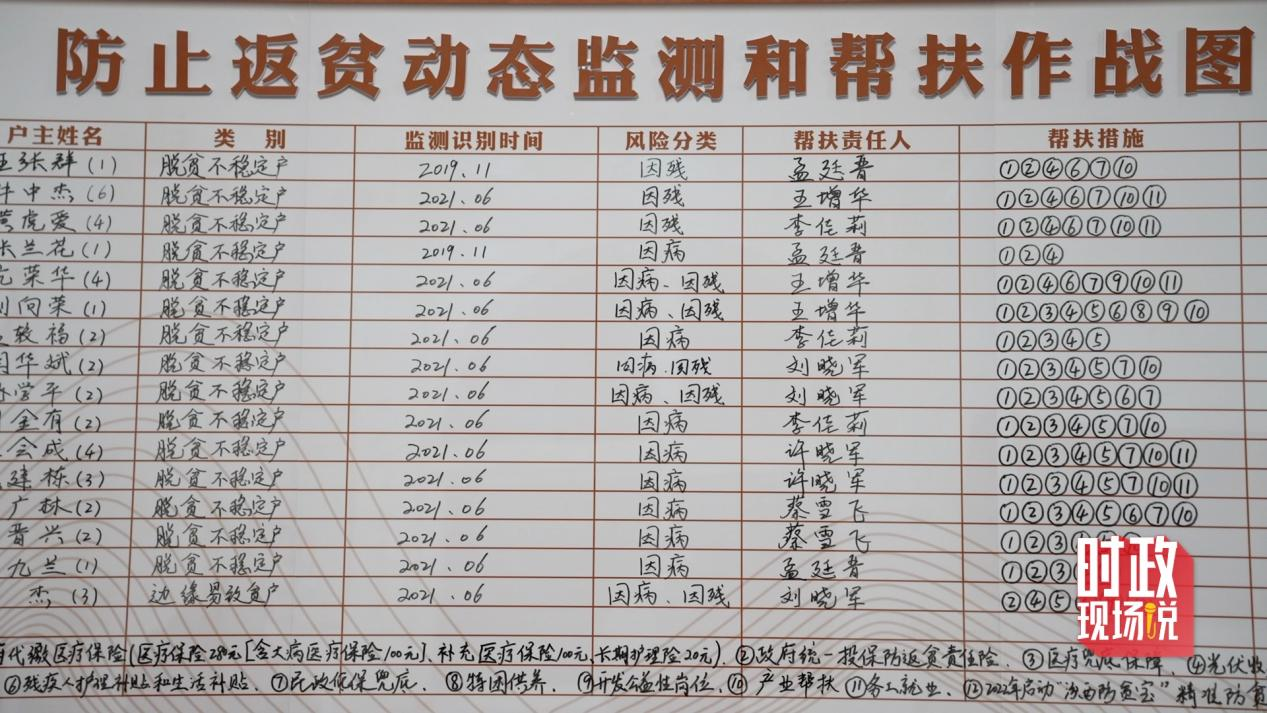 防止返贫动态监测和帮扶作战图
户主姓名 类 别 监测识别时间 风险分类 帮扶责任人 帮扶措施
张群(1) 脱贫不稳定户 2019.11 因残 孟廷晋 ①②④⑥⑦⑩
中杰(6) 脱贫不稳定户 2021.06 因残 王增华 ①②④⑥⑦⑩⑪
虎爱(4) 脱贫不稳定户 2021.06 因残 李佳莉 ①②④⑥⑦⑩⑪
兰花(1) 脱贫不稳定户 2019.11 因病 孟廷晋 ①②④
荣华(4) 脱贫不稳定户 2021.06 因病、因残 王增华 ①②④⑥⑦⑨⑩⑪
向荣(1) 脱贫不稳定户 2021.06 因病、因残 王增华 ①②③④⑤⑥⑧⑨⑩
福(2) 脱贫不稳定户 2021.06 因病 李佳莉 ①②③④⑤
华斌(2) 脱贫不稳定户 2021.06 因病、因残 刘晓军 ①②③④⑤⑦⑩
学平(2) 脱贫不稳定户 2021.06 因病、因残 刘晓军 ①②③④⑤⑥⑦
金有(2) 脱贫不稳定户 2021.06 因病 李佳莉 ①②③④⑤⑦⑩
会成(4) 脱贫不稳定户 2021.06 因病 许晓军 ①②③④⑤⑦⑩⑪
建栋(3) 脱贫不稳定户 2021.06 因病 许晓军 ①②③④⑤⑦⑩⑪
广林(2) 脱贫不稳定户 2021.06 因病 蔡雪飞 ①②③④⑤⑥⑦⑩
晋兴(2) 脱贫不稳定户 2021.06 因病 蔡雪飞 ①②③
九兰(1) 脱贫不稳定户 2021.06 因病 孟廷晋 ①②③
杰(3) 边缘易致贫户 2021.06 因病、因残 刘晓军 ②④⑤
时政
现场说
代缴医疗保险(医疗保险280元[含大病医疗保险100元]、补充医疗保险100元、长期护理险20元)、②政府统一投保防返贫责任险、③医疗兜底保障、④光伏收
⑥残疾人护理补贴和生活补贴、⑦民政低保兜底、⑧特困供养、⑨开发公益性岗位、⑩产业帮扶 ⑪务工就业、⑫2022年启动“汾西防贫宝”精准防贫